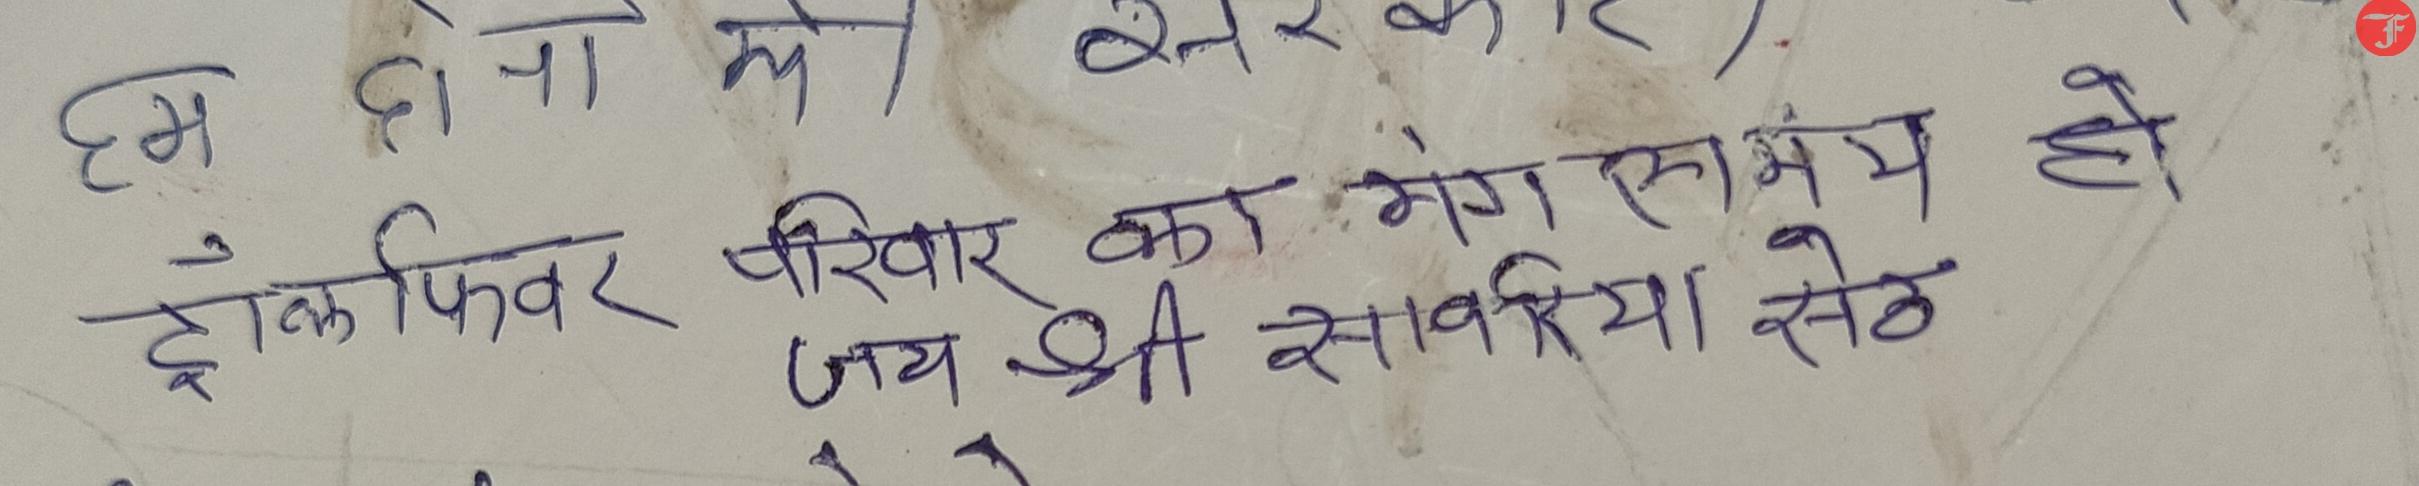 हम दोनो को सरकार
ट्रैफिकवर परिवार का मंगलमंय हो
जय श्री सावरिया सेठ